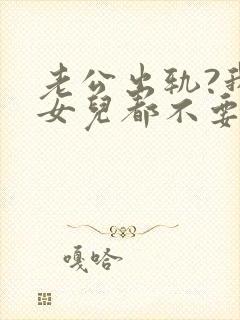 老公出轨?我
女兒都不要
嘎哈